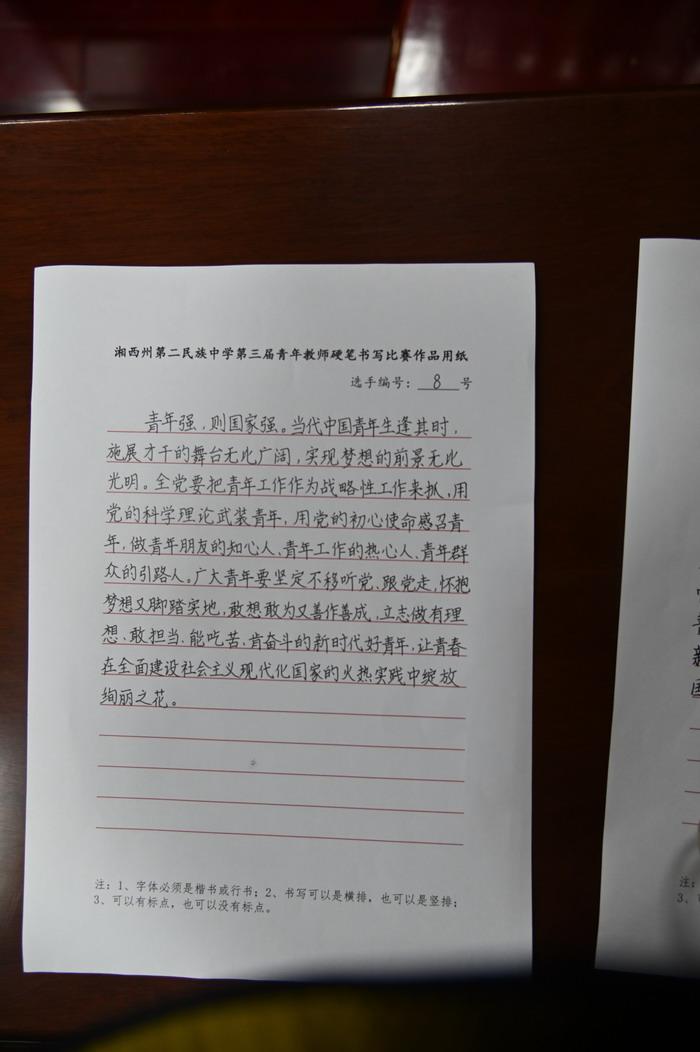 湘西州第二民族中学第三届青年教师硬笔书写比赛作品用纸
选手编号：8号
青年强，则国家强。当代中国青年生逢其时，
施展才干的舞台无比广阔，实现梦想的前景无比
光明。全党要把青年工作作为战略性工作来抓，用
党的科学理论武装青年，用党的初心使命感召青
年，做青年朋友的知心人、青年工作的热心人、青年群
众的引路人。广大青年要坚定不移听党、跟党走，怀抱
梦想又脚踏实地，敢想敢为又善作善成，立志做有理
想、敢担当、能吃苦、肯奋斗的新时代好青年，让青春
在全面建设社会主义现代化国家的火热实践中绽放
绚丽之花。
注：1、字体必须是楷书或行书；2、书写可以是横排，也可以是竖排；
3、可以有标点，也可以没有标点。
注：
3、